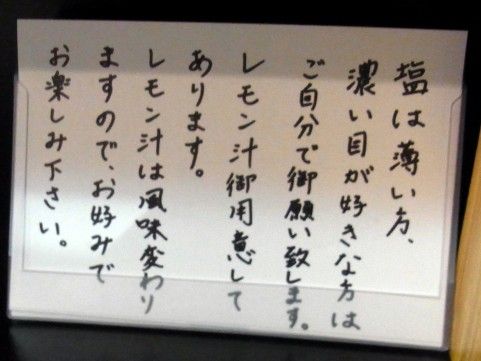 塩は薄い方、
濃い目が好きな方は
ご自分で御願い致します。
レモン汁御用意して
あります。
レモン汁は風味変わり
ますので、お好みで
お楽しみ下さい。